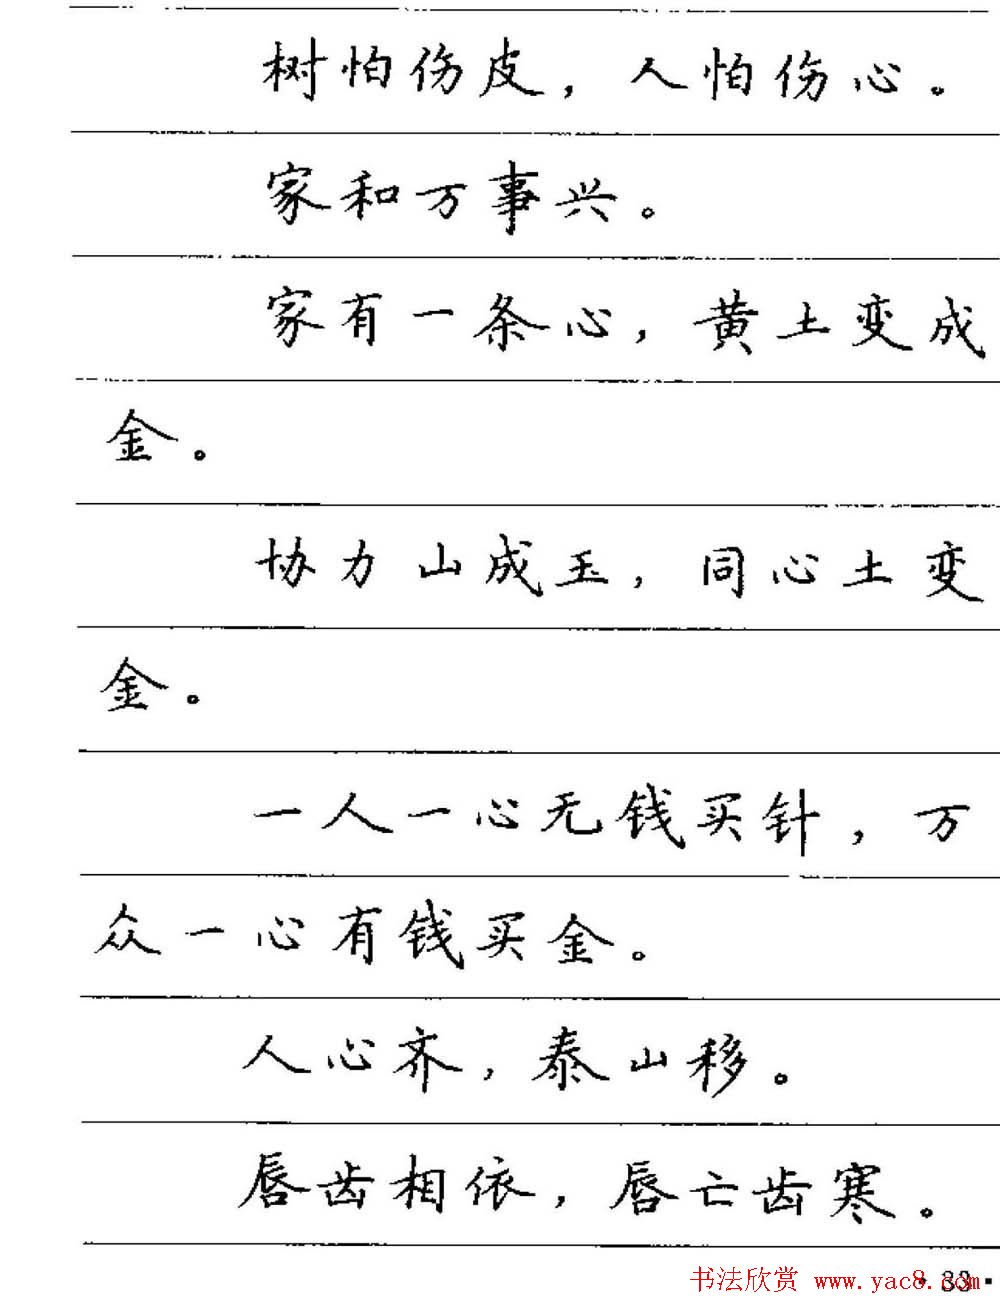 树怕伤皮，人怕伤心。
家和万事兴。
家有一条心，黄土变成
金。
协力山成玉，同心土变
金。
一人一心无钱买针，万
众一心有钱买金。
人心齐，泰山移。
唇齿相依，唇亡齿寒。
书法欣赏 www.yac8.com
· 33 ·